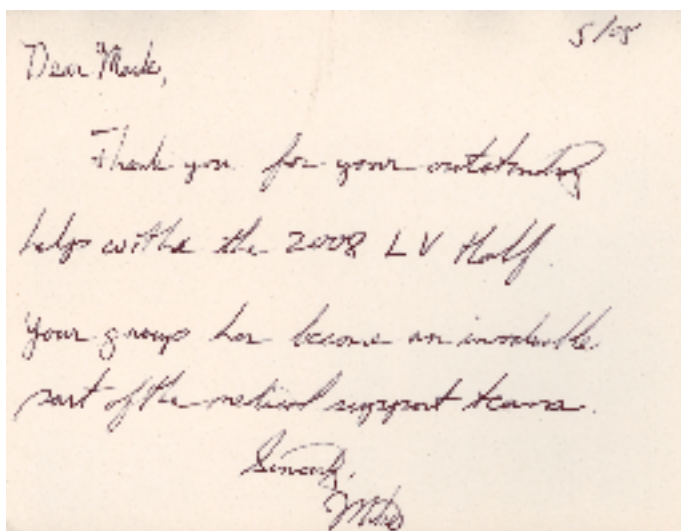 5/08
Dear Mark,
Thank you for your outstanding
help with the 2008 LV Half.
Your group has become an invaluable
part of the medical support team.
Sincerely,
Mike